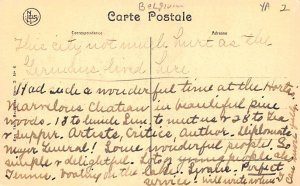 Belgium
YA 2
Carte Postale
Correspondance
Adresse
This city not much hurt as the
Germans lived here.
Had such a wonderful time at the
Marvelous Chateau in beautiful pine
woods. 18 to lunch Sun. to meet us & 28 to tea
& supper. Artists, Critics, Author. Diplomats
Major General! Some wonderful people. So
simple & delightful. Lots of young people also
Tennis, boating on the lake. Swans. Perfect
service! Will write when